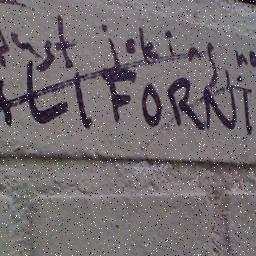 just joking no
CALIFORNI